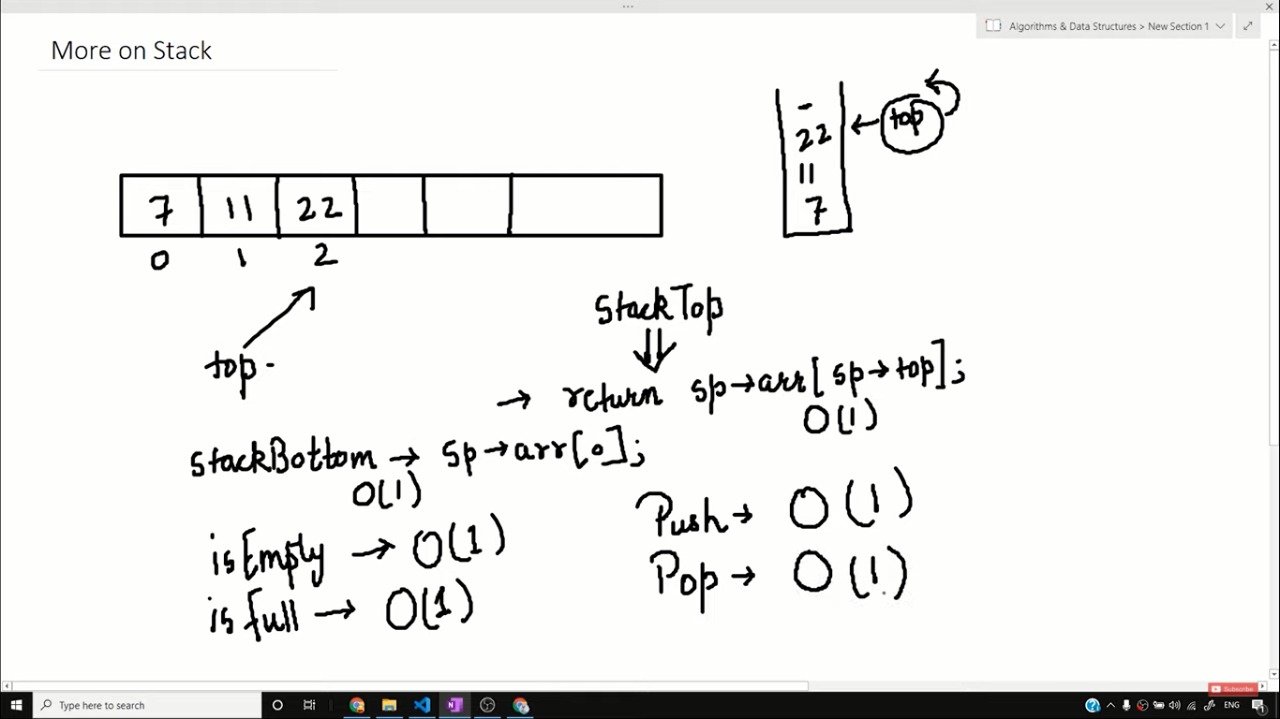 Algorithms & Data Structures > New Section 1
More on Stack
-
22
11
7
top
7 11 22
0 1 2
top -
StackTop
return sp→arr[sp→top];
O(1)
stackBottom → sp→arr[0];
O(1)
isEmpty → O(1)
isfull → O(1)
Push → O(1)
Pop → O(1)
Subscribe
Type here to search
ENG